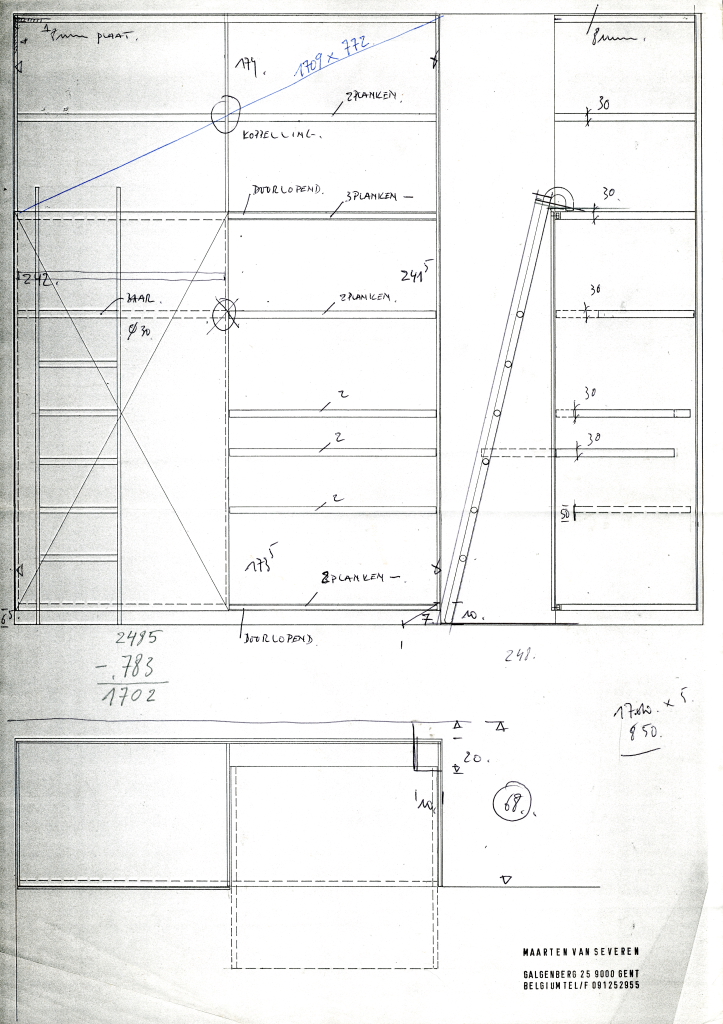 8mm PLAAT.
174.
1709 x 772
8mm.
2PLANKEN.
30
KOPPELLING.
DOORLOPEND.
3PLANKEN
30
242.
241⁵
BAAR.
2PLANKEN.
30
ø 30
2
30
2
30
2
50
173⁵
2PLANKEN
6⁵
7
10.
DOORLOPEND.
2485
- .783
1702
242.
x 5.
850.
20.
10.
68.
MAARTEN VAN SEVEREN
GALGENBERG 25 9000 GENT
BELGIUM TEL/F 091252955